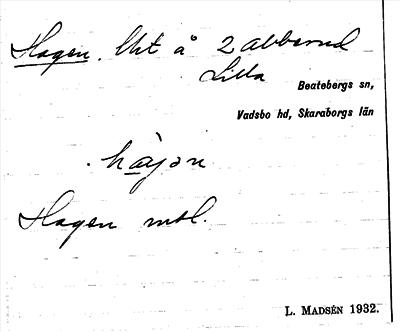 Hagen. Utt å 2 Abberud
Lilla
Beatebergs sn,
Vadsbo hd, Skaraborgs län
hàjən
Hagen mbl.
L. MADSÉN 1932.